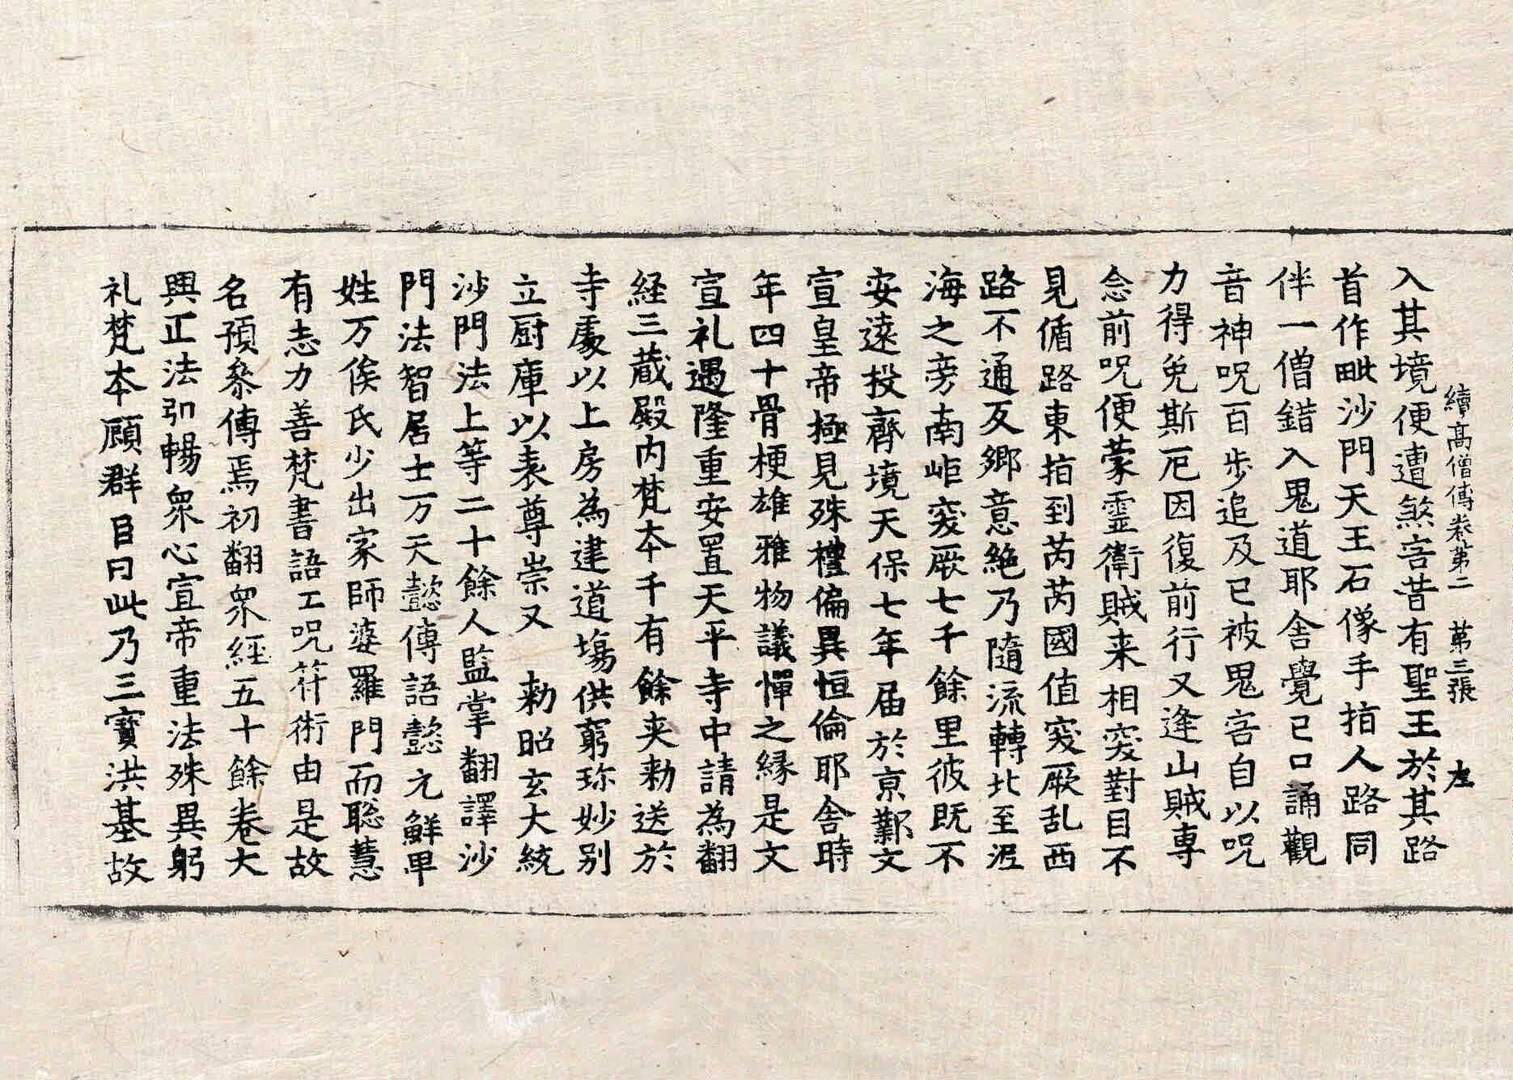 續高僧傳卷第二　第三張　左
入其境便遭煞害昔有聖王於其路
首作毗沙門天王石像手指人路同
伴一僧錯入鬼道耶舍覺已口誦觀
音神呪百步追及已被鬼害自以呪
力得免斯厄因復前行又逢山賊専
念前呪便蒙霊衛賊来相突對目不
見循路東指到芮芮國值突厥乱西
路不通反郷意絶乃隨流轉北至泥
海之旁南岠突厥七千餘里彼既不
安遠投齊境天保七年届於京鄴文
宣皇帝極見殊禮偏異恒倫耶舍時
年四十骨梗雄雅物議憚之縁是文
宣礼遇隆重安置天平寺中請為翻
経三蔵殿内梵夲千有餘夾勑送於
寺處以上房為建道場供窮珎妙別
立厨庫以表尊崇又　勑昭玄大統
沙門法上等二十餘人監掌翻譯沙
門法智居士万天懿傳語懿元鮮卑
姓万俟氏少出家師婆羅門而聡慧
有志力善梵書語工呪符術由是故
名預叅傳焉初翻衆經五十餘卷大
興正法弘暢衆心宣帝重法殊異躬
礼梵夲顧群臣曰此乃三寶洪基故